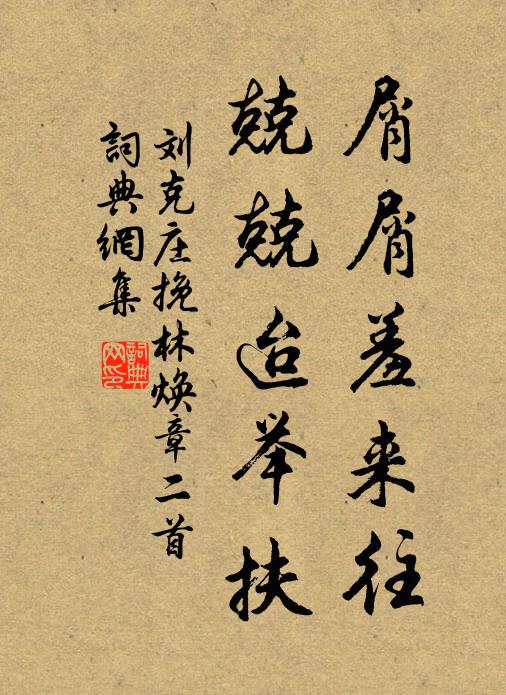 屑屑羞来往
兢兢迨举扶
刘克庄挽林焕章二首
詞典網集
詞典网印